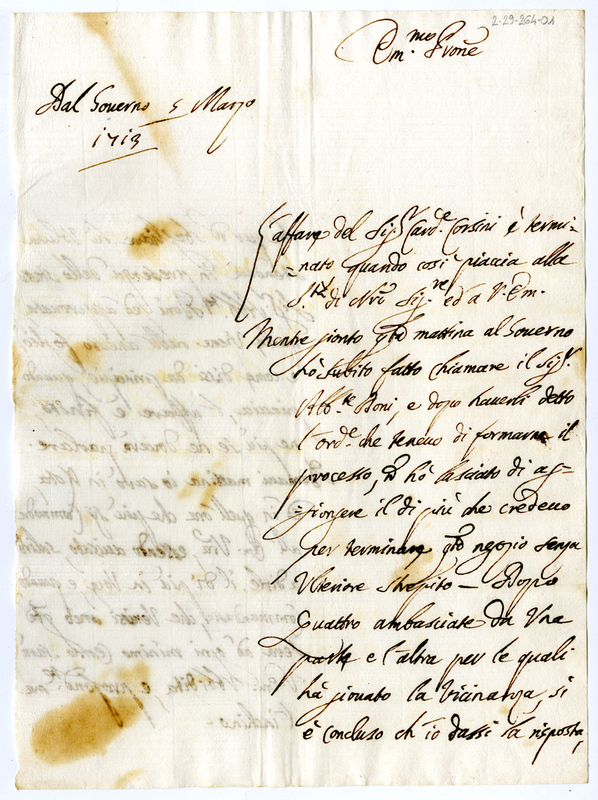 2-29-264-01
Em.mo Prone
Dal Gouerno 5 Marzo
1713
L'affare del Sig.r Card.e Corsini è termi-
=nato quando così piaccia alla
S.tà di Nro Sig.re ed a V. Em.
Mentre gionto q̃to mattina al Gouerno
hò subito fatto chiamare il Sig.r
Abb.te Boni, e dopo hauerli detto
l'ord.e che teneuo di formarne il
processo, hò lasciato di ag-
=gionger il di più che credeuo
per terminare q̃to negozio senza
Vlteriore strepito — Dopo
Quattro ambasciate da Vna
parte e l'altra per le quali
hà giouato la Vicinanza, si
è concluso ch'io dassi la risposta,